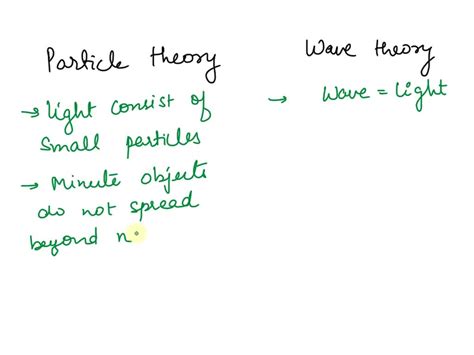 Particle theory
→ Light consist of
small particles
→ Minute objects
do not spread
beyond n
Wave theory
→ Wave = Light